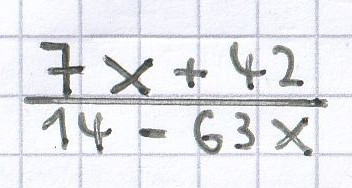 7x + 42
14 - 63x